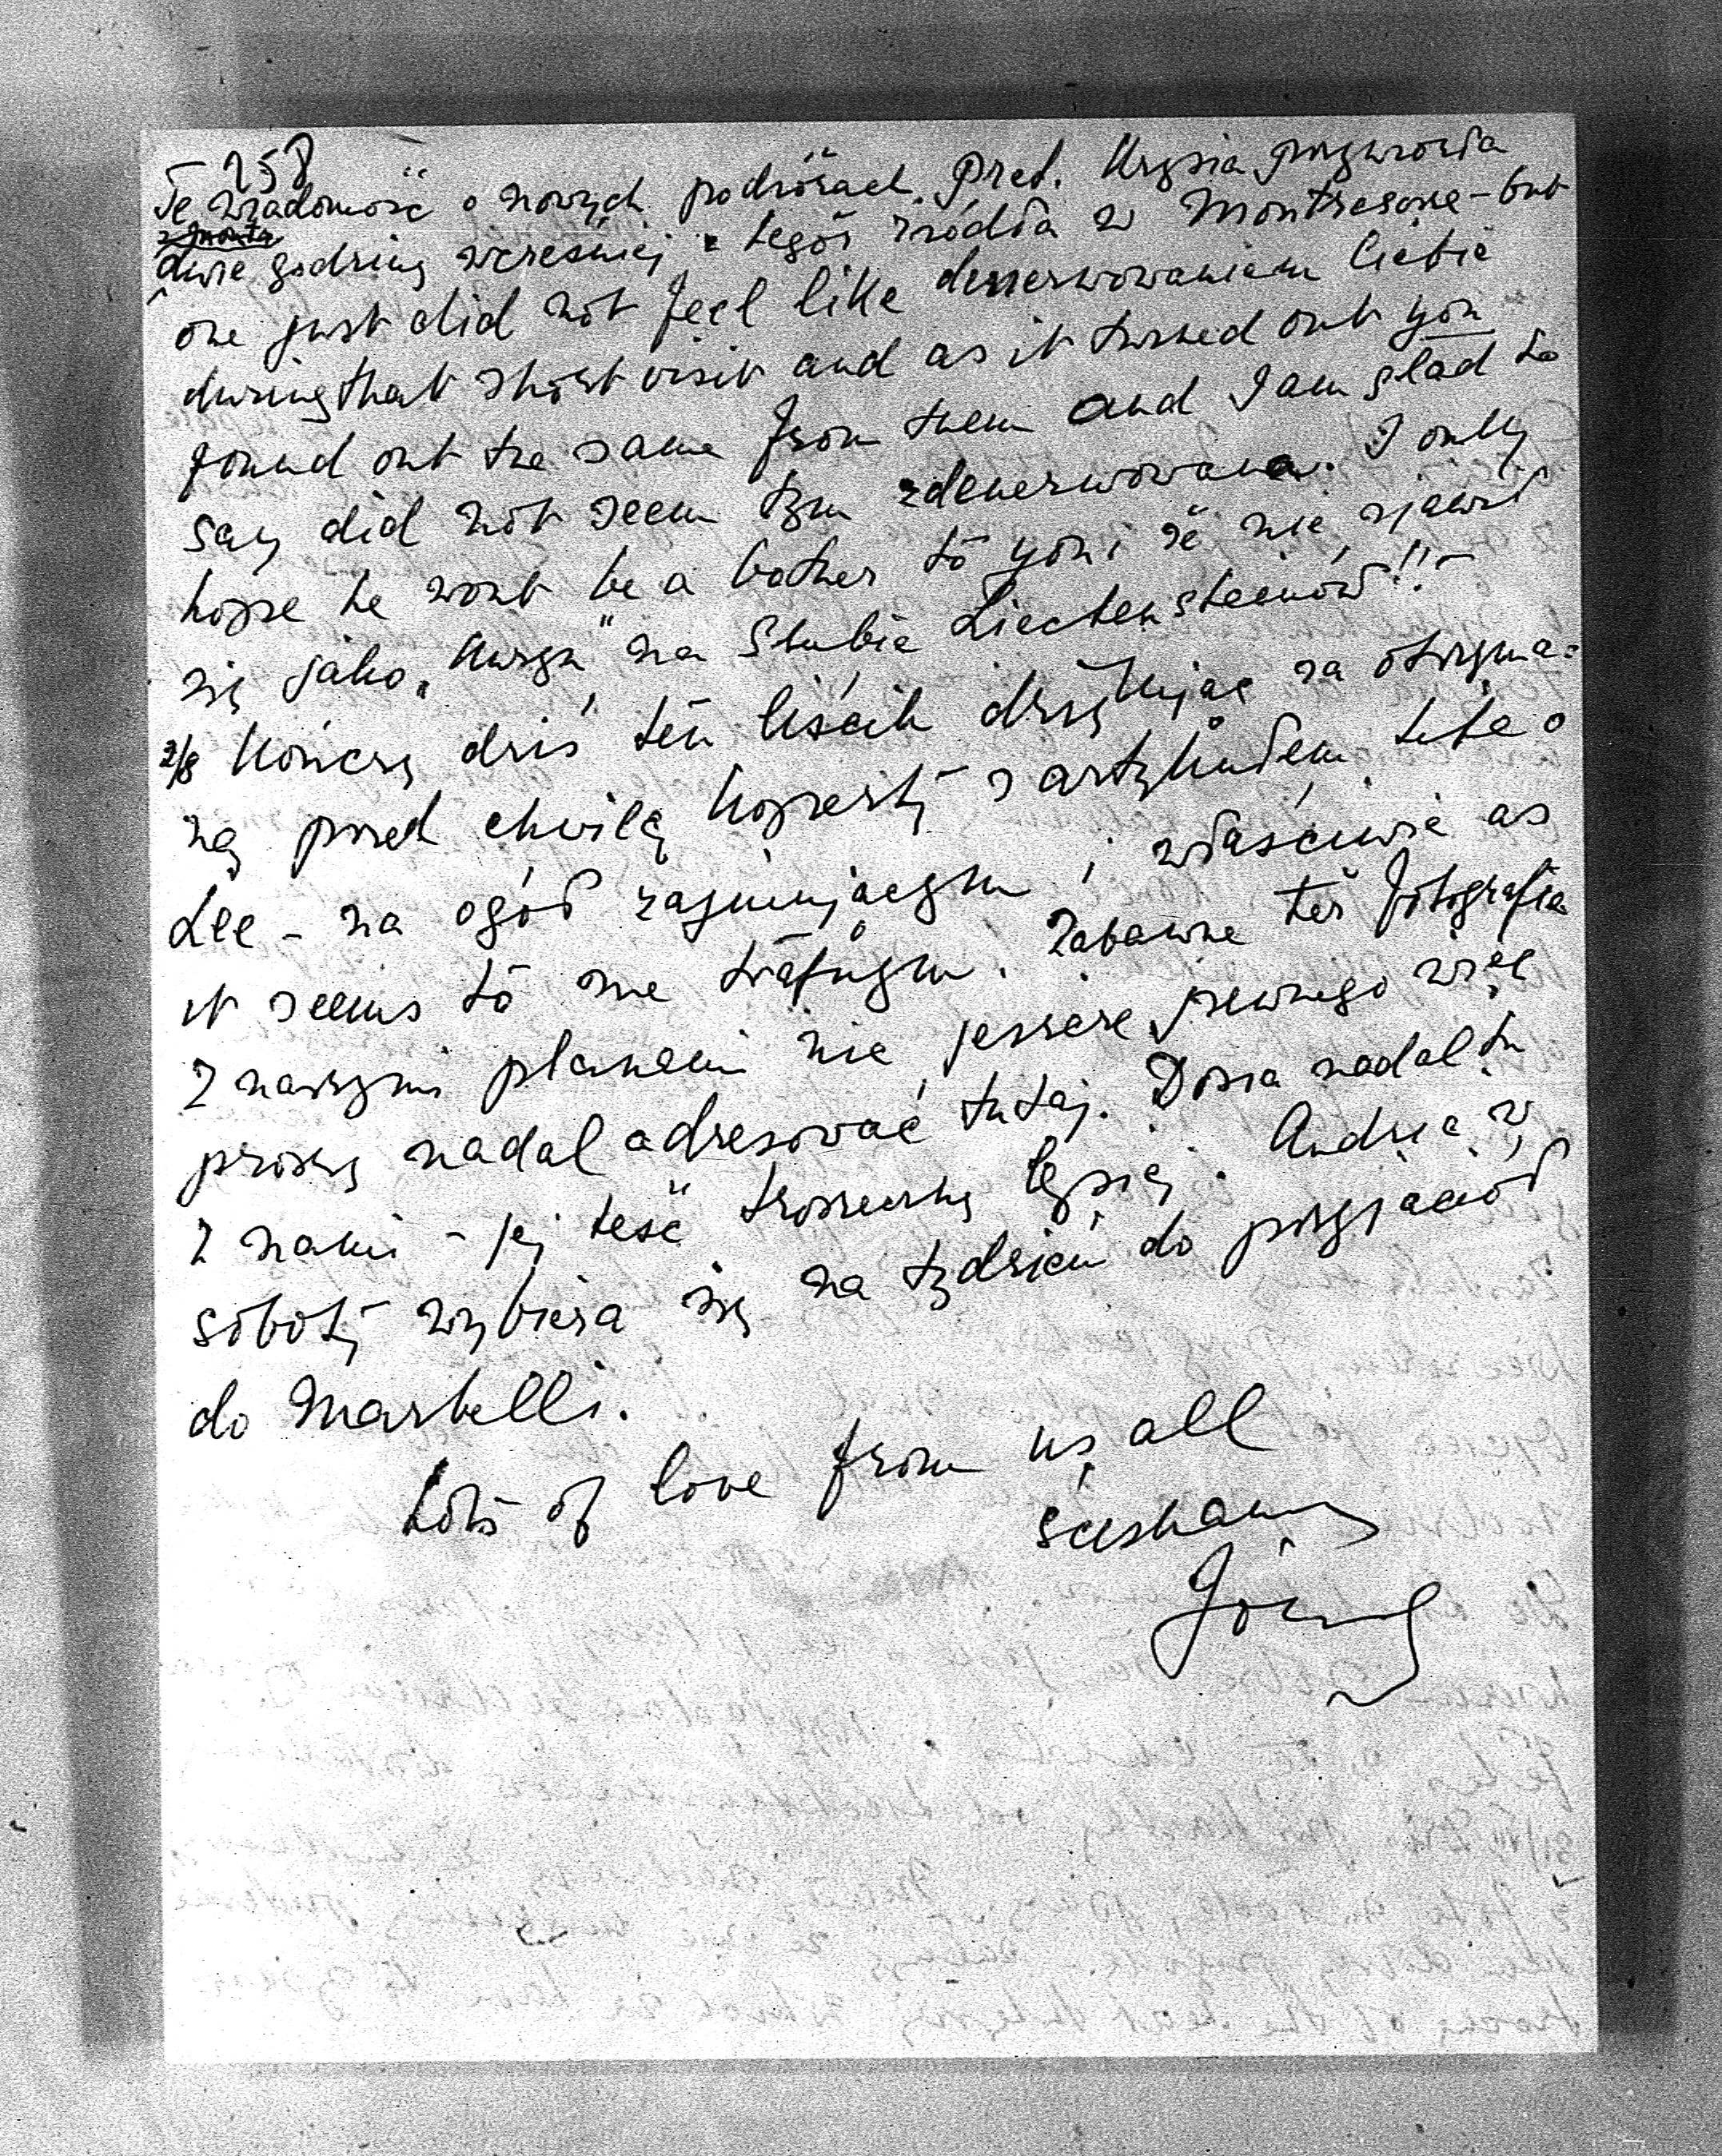 258
Tę wiadomość o nowych podróżach Pret. Krysia przywiozła
dwie godziny wcześniej z tegoż źródła w Montresorze - but
one just did not feel like denerwowaniem Ciebie
during that short visit and as it turned out you
found out the same from them and I am glad to
say did not seem tym zdenerwowana. I only
hope he wont be a bother to you i że nie zjawił
się jako „Kuzyn” na Ślubie Liechtensteinów!! -
2/8 Kończę dziś ten liścik dziękując za otrzyma=
ną przed chwilą kopertę z artykułem tête o
Lee - na ogół zajmującym i właściwie as
it seems to me trafnym. Zabawne też fotografia
Z naszymi planami nic jeszcze pewnego więc
proszę nadal adresować tutaj. Dosia nadal tu
z nami - jej teść troszeczkę lepiej. Andrea w
sobotę wybiera się na tydzień do przyjaciół
do Marbelli.
Lots of love from us all
ściskamy